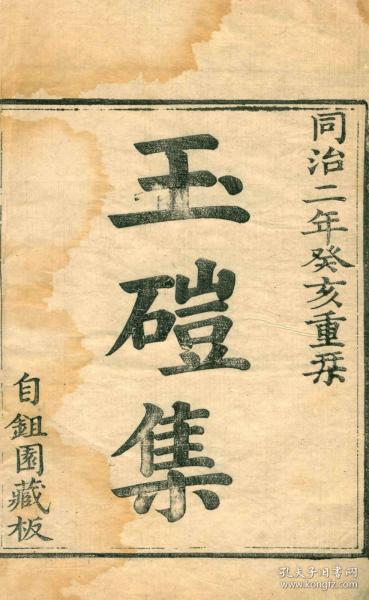 同治二年癸亥重栞
玉磑集
自鉏園藏板
孔夫子旧书网
www.kongfz.com